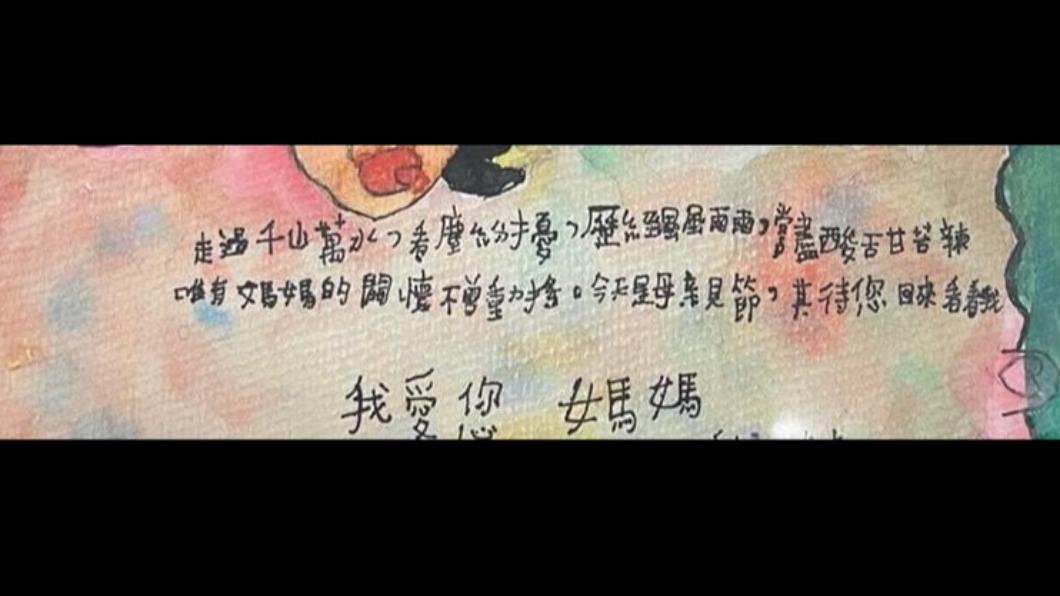 走過千山萬水，看塵紛擾，歷經風風雨雨，嘗盡酸苦甘苦辣
唯有媽媽的關懷不曾動搖。今天是母親節，其待您回來看看我
我愛您 媽媽